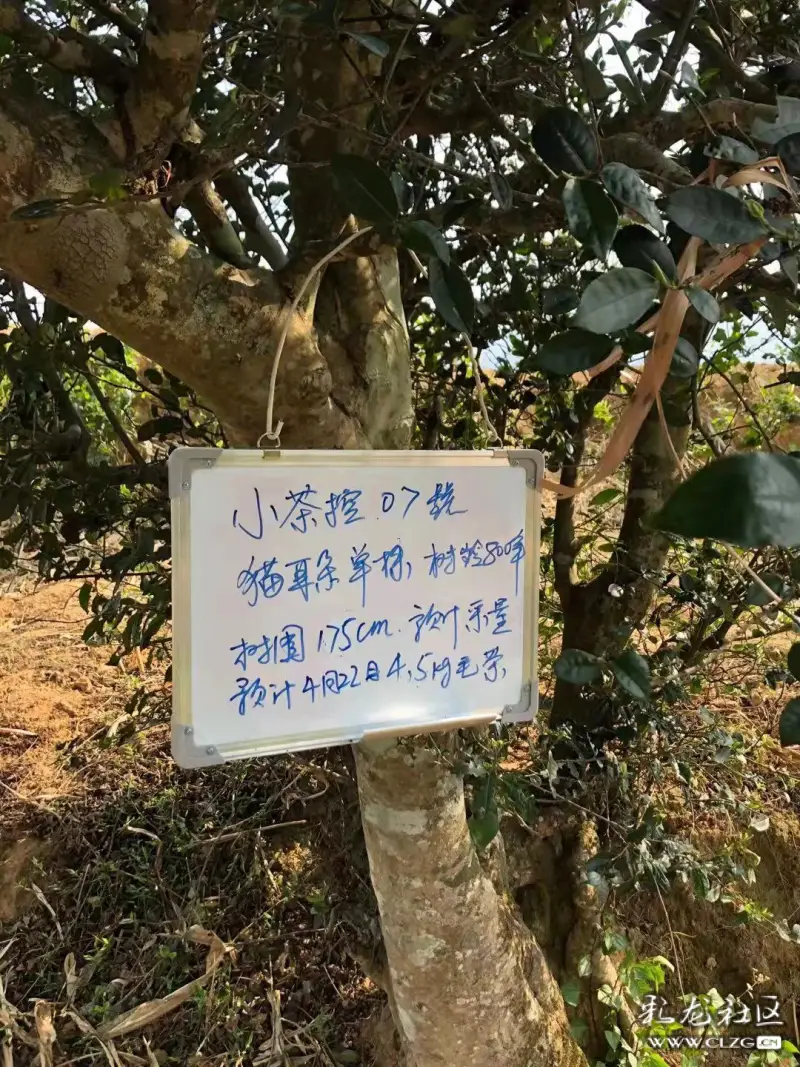 小茶控 07號
猫耳朵单株, 树龄800年
树围 175cm. 预计采量
预计4月22日4.5kg毛茶
彩龙社区
WWW.CLZG.CN